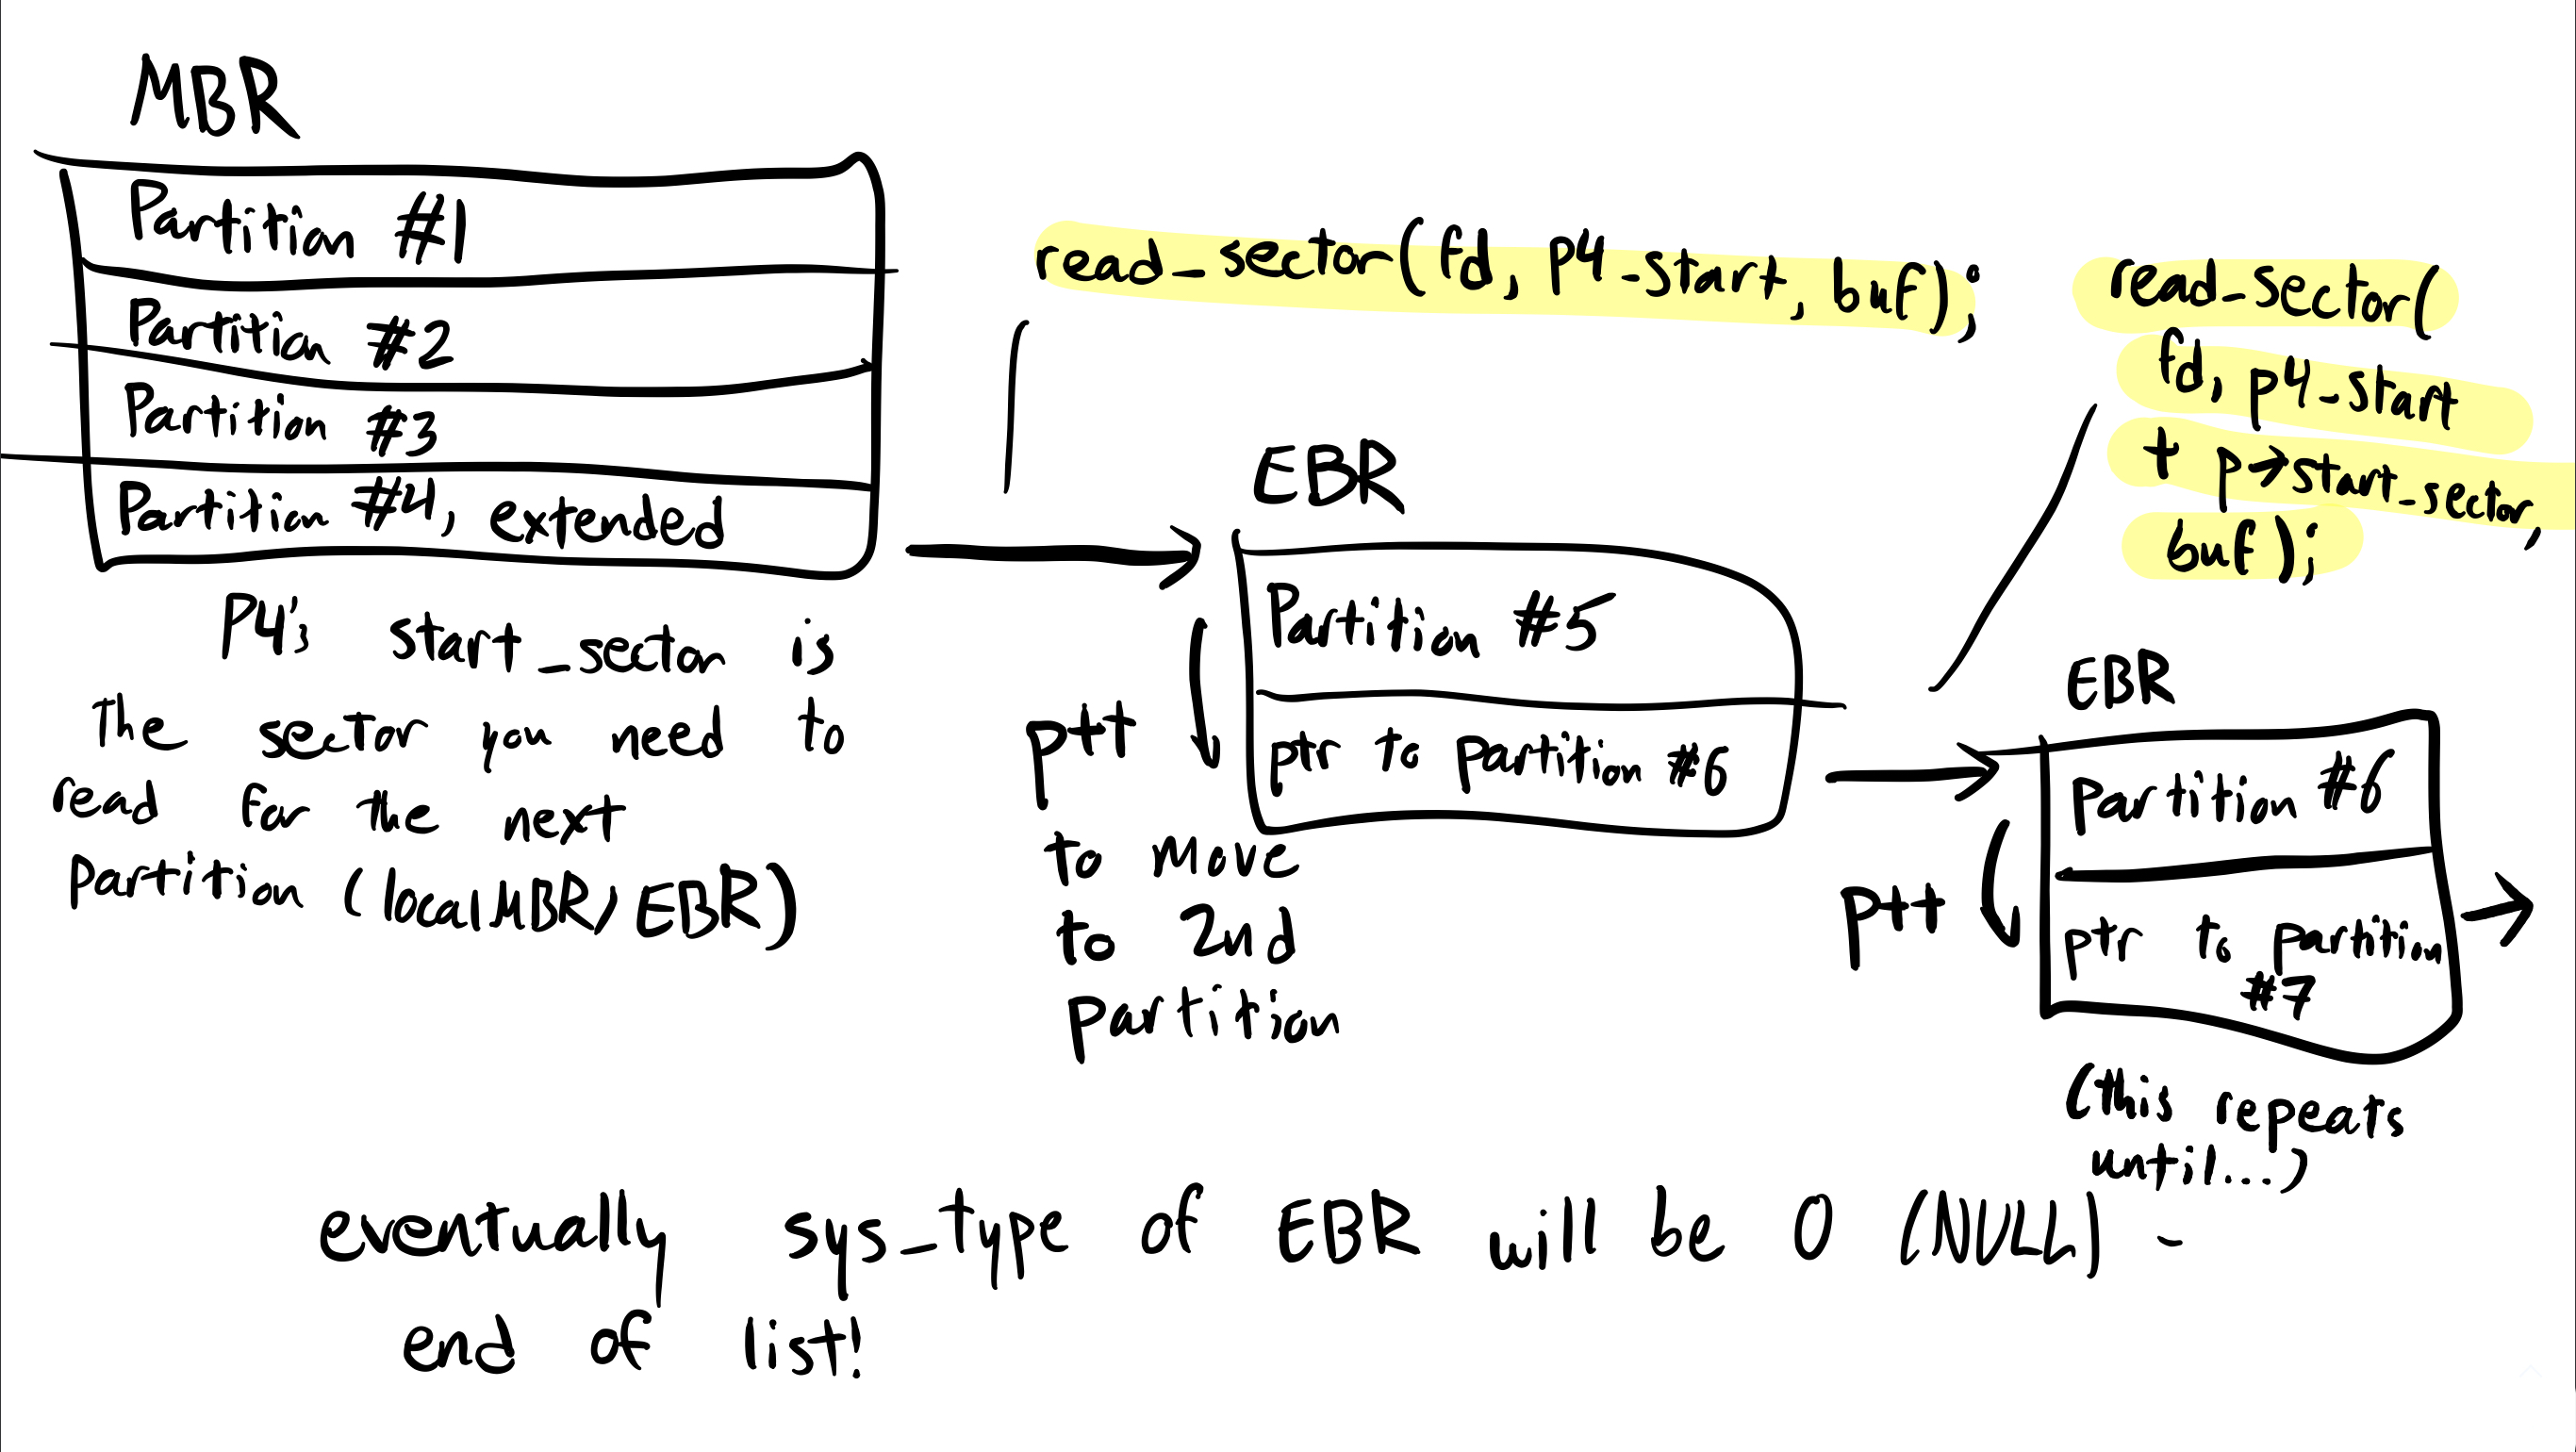 MBR
Partition #1
Partition #2
Partition #3
Partition #4, extended
P4's start_sector is
the sector you need to
read for the next
partition (localMBR/EBR)
read_sector(fd, p4_start, buf);
EBR
Partition #5
ptr to partition #6
p++
to move
to 2nd
partition
read_sector(
fd, p4_start
+ p→start_sector,
buf);
EBR
Partition #6
ptr to partition
#7
p++
(this repeats
until...)
eventually sys_type of EBR will be 0 (NULL) -
end of list!